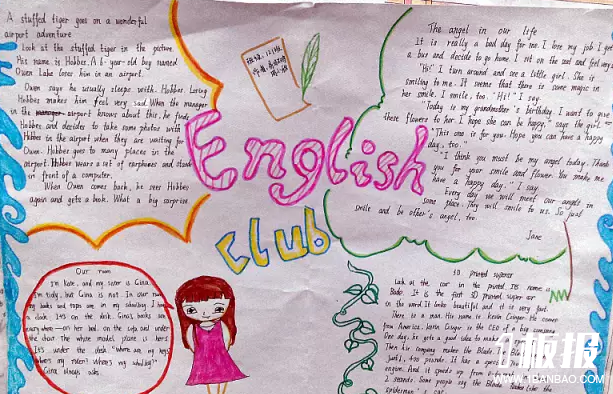 A stuffed tiger goes on a wonderful
airport adventure
Look at the stuffed tiger in the picture.
His name is Hobbes. A 6-year-old boy named
Owen Lake loses him in an airport.
Owen says he usually sleeps with Hobbes. Losing
Hobbes makes him feel very sad. When the manager
in the airport knows about this, he finds
Hobbes and decides to take some photos with
Hobbes in the airport when they are waiting for
Owen. Hobbes goes to many places in the
airport. Hobbes wears a set of earphones and stands
in front of a computer.
When Owen comes back, he sees Hobbes
again and gets a book. What a big surprise
English
Club
The angel in our life
It is really a bad day for me. I lose my job. I get
a bus and decide to go home. I sit on the seat and feel very
"Hi!" I turn around and see a little girl. She is
smiling to me. It seems that there is some magic in
her smile. I smile, too. "Hi!" I say.
"Today is my grandmother's birthday. I want to give
these flowers to her. I hope she can be happy," says the girl.
"This one is for you. Hope you can have a happy
day, too."
"I think you must be my angel today. Thank
you for your smile and flower. You make me
have a happy day." I say.
Every day we will meet our angels in
some place. They will smile to us. So just
smile and be other's angel, too.
Jane
Our room
I'm Kate, and my sister is Gina.
I'm tidy, but Gina is not. In our room,
my books and tapes are in my schoolbag. I have
a clock. It's on the desk. Gina's books are
everywhere — on her bed, on the sofa and under
the chair. The white model plane is hers.
It's under the desk. "Where are my keys
where's my ruler? where's my
Gina always asks.
3D printed supercar
Look at the car in the picture. Its name
Blade. It is the first 3D printed super car
in the world. It looks beautiful and it is very fast.
There is a man. His name is Kevin Czinger. He comes
from America. Kevin Czinger is the CEO of a big company.
One day, he gets a good idea to make
Then his company makes the Blade. The Blade
engine. And it speeds up from
2 seconds. Some people say the Blade looks like the
板报
WWW.1BANBAO.COM